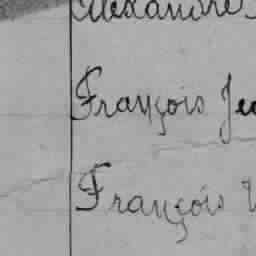 Alexandre
François Je
François